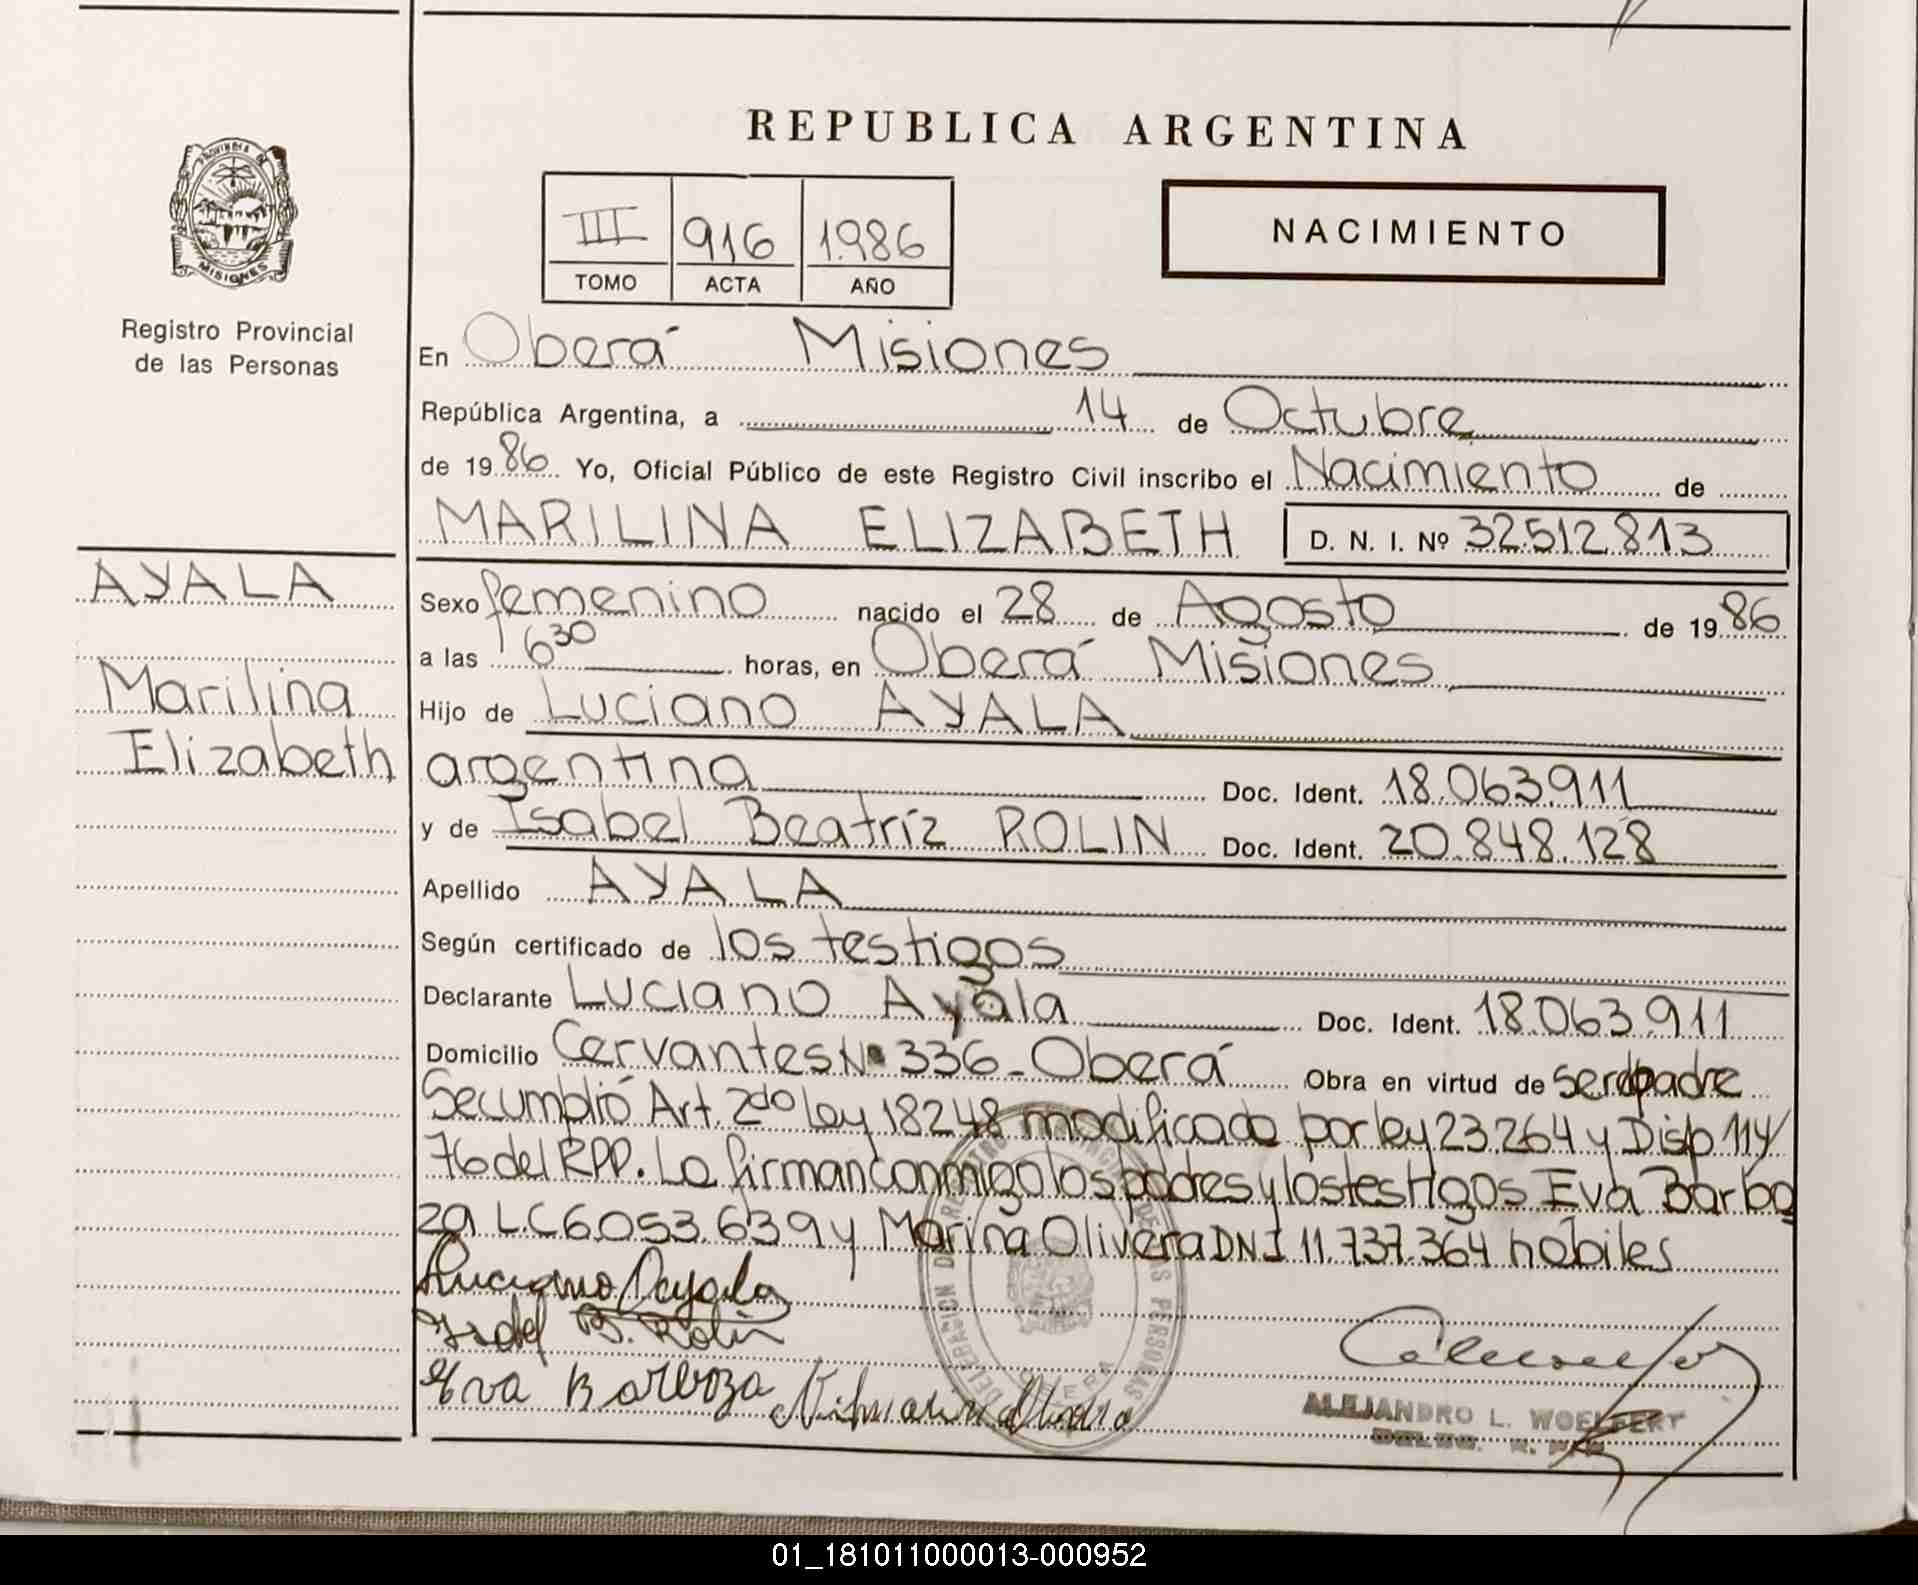 REPUBLICA ARGENTINA
PROVINCIA DE
MISIONES
Registro Provincial
de las Personas
III 916 1.986
TOMO ACTA AÑO
NACIMIENTO
En Oberá Misiones
República Argentina, a 14 de Octubre
de 1986 Yo, Oficial Público de este Registro Civil inscribo el Nacimiento de
MARILINA ELIZABETH D. N. I. Nº 32.512.813
AYALA
Marilina
Elizabeth
Sexo femenino nacido el 28 de Agosto de 1986
a las 6 30 horas, en Oberá Misiones
Hijo de Luciano AYALA
argentina Doc. Ident. 18.063.911
y de Isabel Beatríz ROLIN Doc. Ident. 20.848.128
Apellido AYALA
Según certificado de los testigos
Declarante Luciano Ayala Doc. Ident. 18.063.911
Domicilio Cervantes Nº 336 - Oberá Obra en virtud de ser el padre
Se cumplió Art. 2do ley 18248 modificado por ley 23.264 y Disp. 114/
76 del RPP. La firman conmigo los padres y los testigos Eva Barbo
za L.C 6.053.639 y Marina Olivera DNI 11.737.364 hábiles
Luciano Ayala
Isabel B. Rolin
Eva Barboza
ALEJANDRO L. WOELFERT
01_181011000013-000952